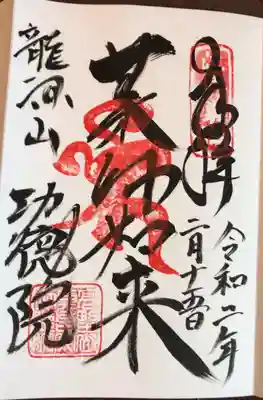 奉拝
令和二年
二月十五日
薬師如来
龍源山
功徳院